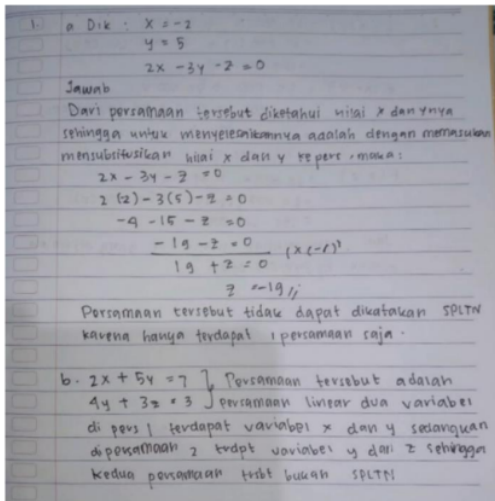 1. a Dik : x = -2
y = 5
2x - 3y - z = 0
Jawab
Dari persamaan tersebut diketahui nilai x dan ynya
sehingga untuk menyelesaikannya adalah dengan memasukan
mensubsitusikan nilai x dan y ke pers, maka :
2x - 3y - z = 0
2 (2) - 3(5) - z = 0
-4 - 15 - z = 0
-19 - z = 0 (x (-1))
19 + z = 0
z = -19 //
Persamaan tersebut tidak dapat dikatakan SPLTN
karena hanya terdapat 1 persamaan saja.
b. 2x + 5y = 7 } Persamaan tersebut adalah
4y + 3z = 3 } persamaan linear dua variabel
di pers 1 terdapat variabel x dan y sedangkan
di persamaan 2 trdpt variabel y dari z sehingga
kedua persamaan trsbt bukan SPLTN